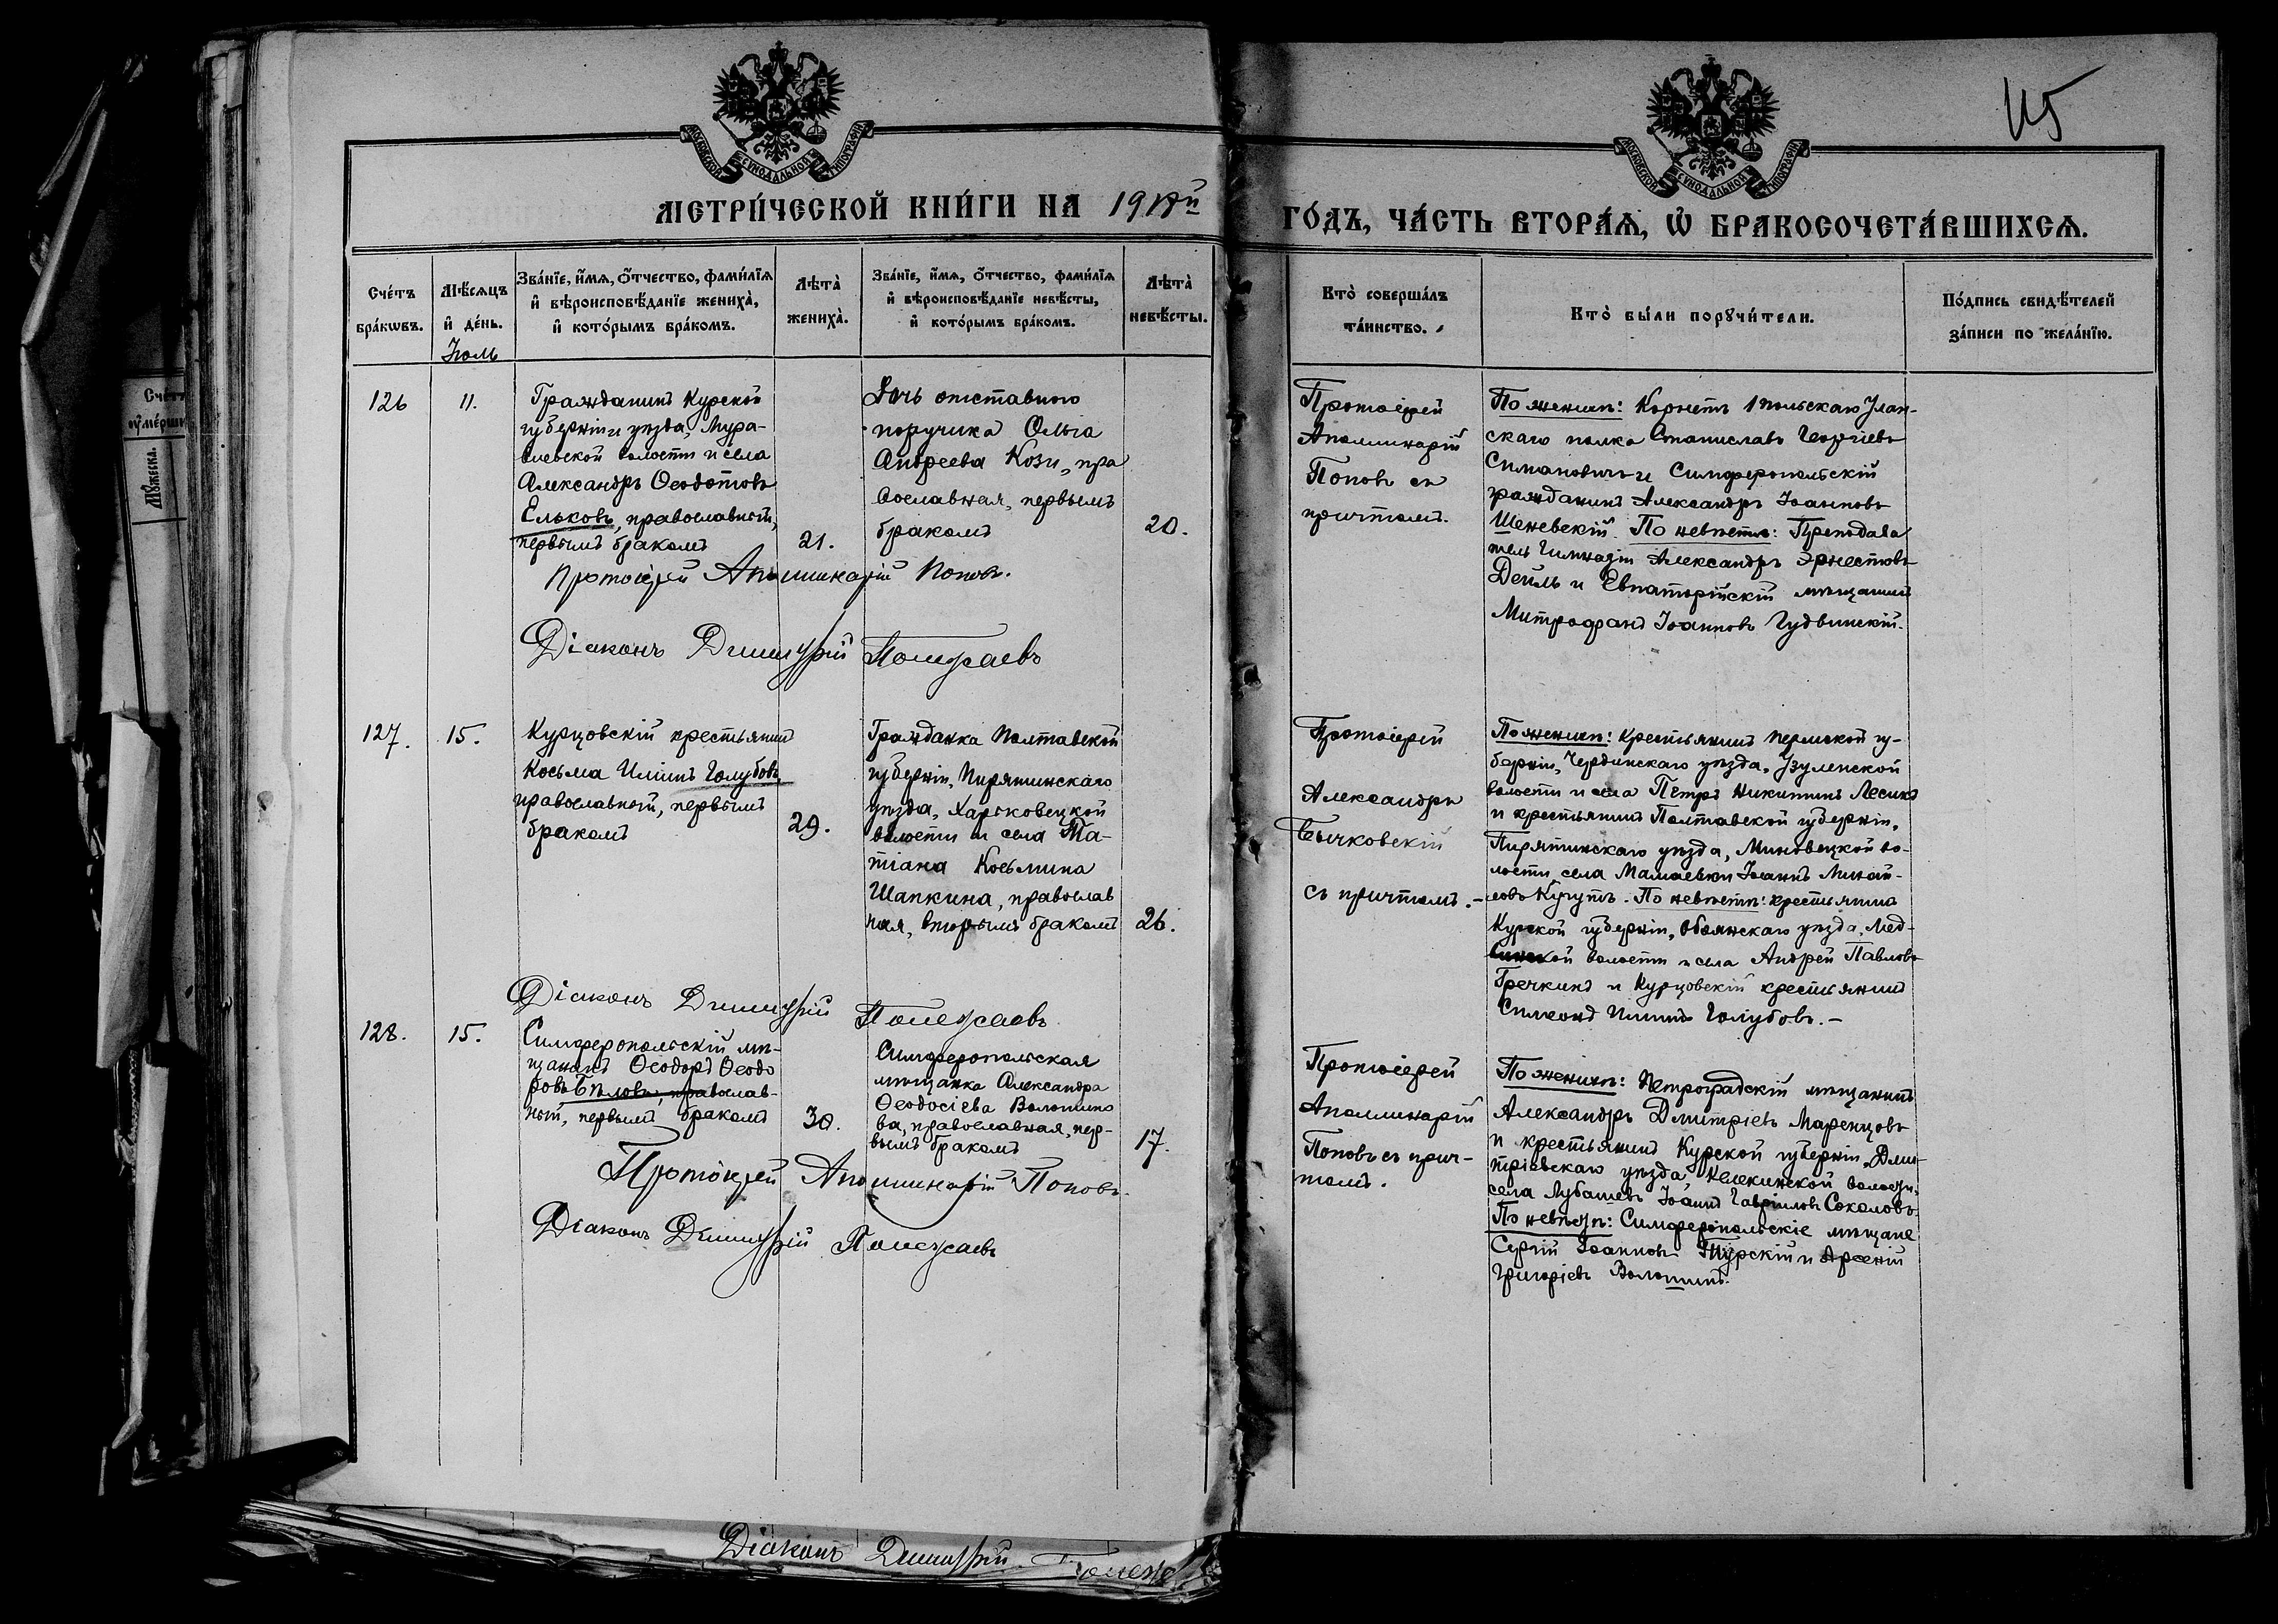 МОСКОВСКОЙ СУНОДАЛЬНОЙ ТИПОГРАФІИ
МОСКОВСКОЙ СУНОДАЛЬНОЙ ТИПОГРАФІИ
115
МЕТРИ́ЧЕСКОЙ КНИ́ГИ НА 1918й
ГО́ДЪ, ЧА́СТЬ ВТОРА́Ѧ, Ѽ БРАКОСОЧЕТА́ВШИХСѦ.
Сче́тъ бра́кѡвъ.
Мѣ́сяцъ и де́нь.
Зва́нїе, и́мѧ, о́тчество, фами́лїѧ
и вѣроисповѣ́данїе жениха̀,
и кото́рымъ бра́комъ.
Лѣта̀ жениха̀.
Зва́нїе, и́мѧ, о́тчество, фами́лїѧ
и вѣроисповѣ́данїе невѣ́сты,
и кото́рымъ бра́комъ.
Лѣта̀ невѣ́сты.
Кто̀ соверша́лъ
та́инство.
Кто̀ бы́ли порꙋчи́тели.
По́дпись свидѣ́телей
за́писи по жела́нїю.
Іюль
126
11.
Гражданинъ Курской
губерніи уѣзда, Мура-
влевской волости и села
Александръ Ѳеодотовъ
Ельковъ, православный,
первымъ бракомъ
21.
Дочь отставного
поручика Ольга
Андреева Кози, пра
вославная, первымъ
бракомъ
20.
Протоіерей
Аполлинарій
Поповъ съ
причтомъ.
По женихѣ: Корнетъ 1 польскаго Улан-
скаго полка Станиславъ Георгіевъ
Симановичъ и Симферопольскій
гражданинъ Александръ Іоанновъ
Шеневскій. По невѣстѣ: Преподава
тель Гимназіи Александръ Эрнестовъ
Дейль и Евпаторійскій мѣщанинъ
Митрофанъ Іоанновъ Гудвинскій.
Протоіерей Аполлинарій Поповъ.
Діаконъ Димитрій Полежаевъ
127.
15.
Курцовскій крестьянинъ
Косьма Иліинъ Голубовъ,
православный, первымъ
бракомъ
29.
Гражданка Полтавской
губерніи, Пирятинскаго
уѣзда, Харьковецкой
волости и села Та-
тіана Косьмина
Шапкина, православ
ная, вторымъ бракомъ
26.
Протоіерей
Александръ
Бычковскій
съ причтомъ.-
По женихѣ: крестьянинъ Пермской гу-
берніи, Чердинскаго уѣзда,
волости и села Петръ Никитинъ Лесикъ
и крестьянинъ Полтавской губерніи,
Пирятинскаго уѣзда, во-
лости, села Мамаевки Іоаннъ Михай-
ловъ Кугутъ. По невѣстѣ: крестьянинъ
Курской губерніи, Обоянскаго уѣзда, Мед-
винской волости и села Андрей Павловъ
Гречкинъ и Курцовскій крестьянинъ
Симеонъ Иліинъ Голубовъ.-
Діаконъ Димитрій Полежаевъ.
128.
15.
Симферопольскій мѣ-
щанинъ Ѳеодоръ Ѳеодо
ровъ Бѣловъ, православ-
ный, первымъ бракомъ
30.
Симферопольская
мѣщанка Александра
Ѳеодосіева Волошино
ва, православная, пер-
вымъ бракомъ
17.
Протоіерей
Аполлинарій
Поповъ съ прич-
томъ.
По женихѣ: Петроградскій мѣщанинъ
Александръ Дмитріевъ Маренцовъ
и крестьянинъ Курской губерніи, Дми-
тріевскаго уѣзда, волости,
села Лубашевъ Іоаннъ Гавріиловъ Соколовъ.
По невѣстѣ: Симферопольскіе мѣщане
Сергій Іоанновъ и Арсеній
Григоріевъ Волошинъ.
Протоіерей Аполлинарій Поповъ.
Діаконъ Димитрій Полежаевъ
Діаконъ Димитрій Полеж